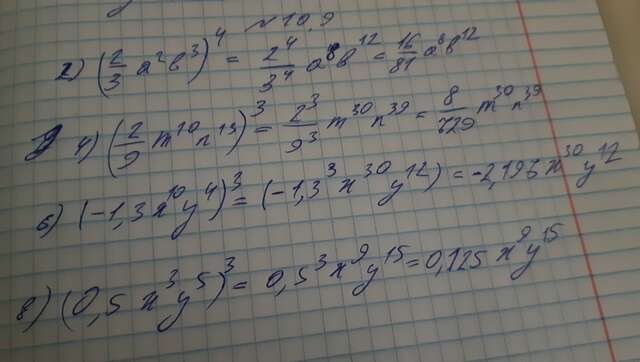 ~10.9
2) (2/3 a²b³)⁴ = 2⁴/3⁴ a⁸b¹² = 16/81 a⁸b¹²
4) (2/9 m¹⁰n¹³)³ = 2³/9³ m³⁰n³⁹ = 8/729 m³⁰n³⁹
6) (-1,3x¹⁰y⁴)³ = (-1,3³x³⁰y¹²) = -2,197x³⁰y¹²
8) (0,5x³y⁵)³ = 0,5³x⁹y¹⁵ = 0,125x⁹y¹⁵